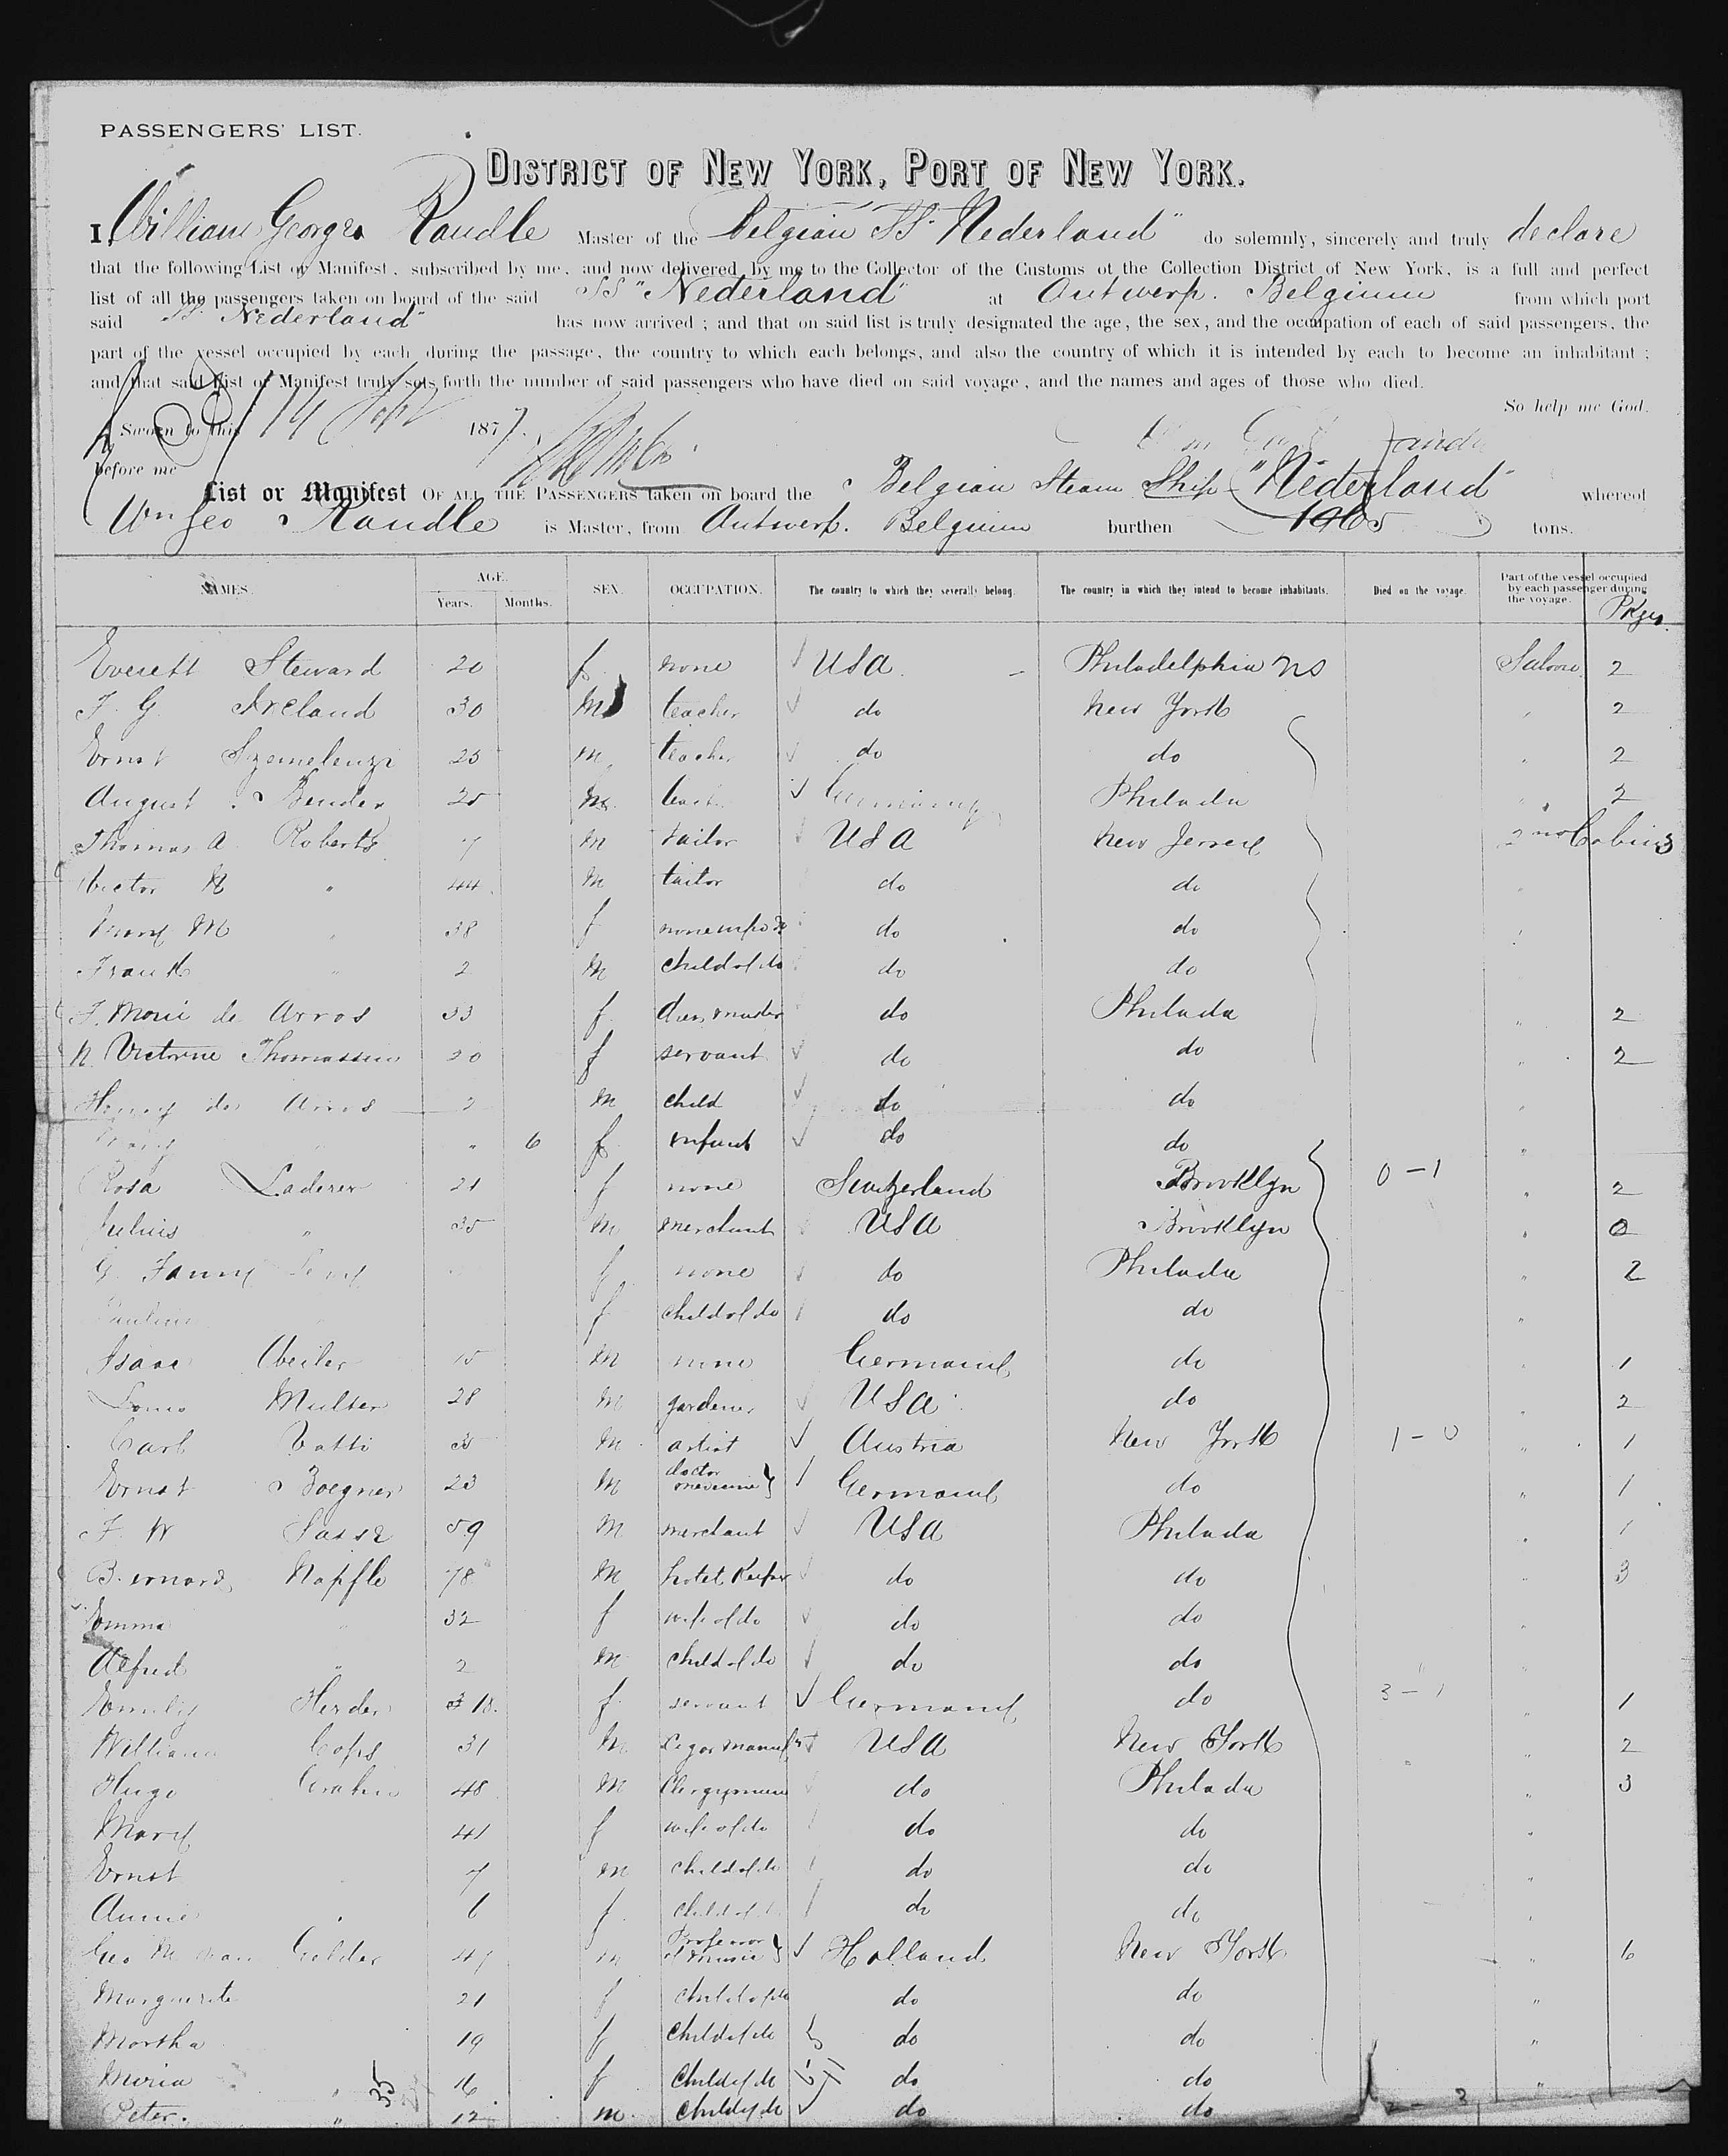 PASSENGERS' LIST.
DISTRICT OF NEW YORK, PORT OF NEW YORK.
I, William George Randle Master of the Belgian SS "Nederland" do solemnly, sincerely and truly declare
that the following List or Manifest, subscribed by me, and now delivered by me to the Collector of the Customs of the Collection District of New York, is a full and perfect
list of all the passengers taken on board of the said SS "Nederland" at Antwerp. Belgium from which port
said SS "Nederland" has now arrived ; and that on said list is truly designated the age, the sex, and the occupation of each of said passengers, the
part of the vessel occupied by each during the passage, the country to which each belongs, and also the country of which it is intended by each to become an inhabitant ;
and that said List or Manifest truly sets forth the number of said passengers who have died on said voyage, and the names and ages of those who died.
So help me God.
Sworn to this 14 Sept 1877.
before me
List or Manifest OF ALL THE PASSENGERS taken on board the Belgian Steam Ship "Nederland" whereof
Wm Geo Randle is Master, from Antwerp. Belgium burthen tons.
NAMES. AGE. Years. Months. SEX. OCCUPATION. The country to which they severally belong. The country in which they intend to become inhabitants. Died on the voyage. Part of the vessel occupied by each passenger during the voyage. Pkges.
Everett Steward 20 f none USA Philadelphia Saloon 2
F. G. Ireland 30 m teacher do New York " 2
Ernst 25 m teacher do do " 2
August Bender 25 m Germany Philada " 2
Thomas A Roberts 7 m tailor USA New Jersey 2nd Cabin 3
Victor " 44 m tailor do do "
M " 38 f do do "
Frank " 2 m child of do do do
F. Marie de Arros 33 f do Philada " 2
N. Victorine Thomassin 20 f servant do do " 2
Henry de Arros 2 m child do do "
" " 6 f infant do do "
Rosa Laderer 21 f none Switzerland Brooklyn 0-1 " 2
Julius " 35 m merchant USA Brooklyn "
G. Fanny Levy f none do Philada " 2
Pauline f child of do do do "
Isaac 15 m none Germany do " 1
Louis Multer 28 m gardener USA do " 2
Carl m artist Austria New York 1-0 " 1
Ernst Boegner 23 m doctor medicine Germany do " 1
F. W Sasse 59 m merchant USA Philada " 1
Bernard Napfle m hotel Keeper do do " 3
Emma " 32 f wife of do do do "
Alfred " 2 m child of do do do
Emily Herder 18. f servant Germany do 3-1 " 1
William Cops 31 m Cigar manuf USA New York " 2
Hugo 48 m Clergyman do Philada " 3
Mary 41 f wife of do do do "
Ernst 7 m child of do do do "
Annie 6 f child of do do do "
Geo M van Gelder m Professor of music Holland New York " 6
Marguerite 21 f child of do do do "
Martha 19 f child of do do do "
Maria " 16 f child of do do do "
Peter. " 12 m child of do do do
35